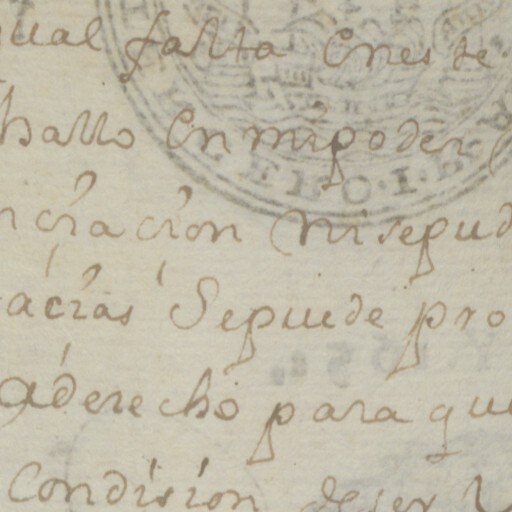 qual falta eneste
hallo en mi poder
nciacion ni sepud
acias sepuede pro
aderecho para que
condision deser